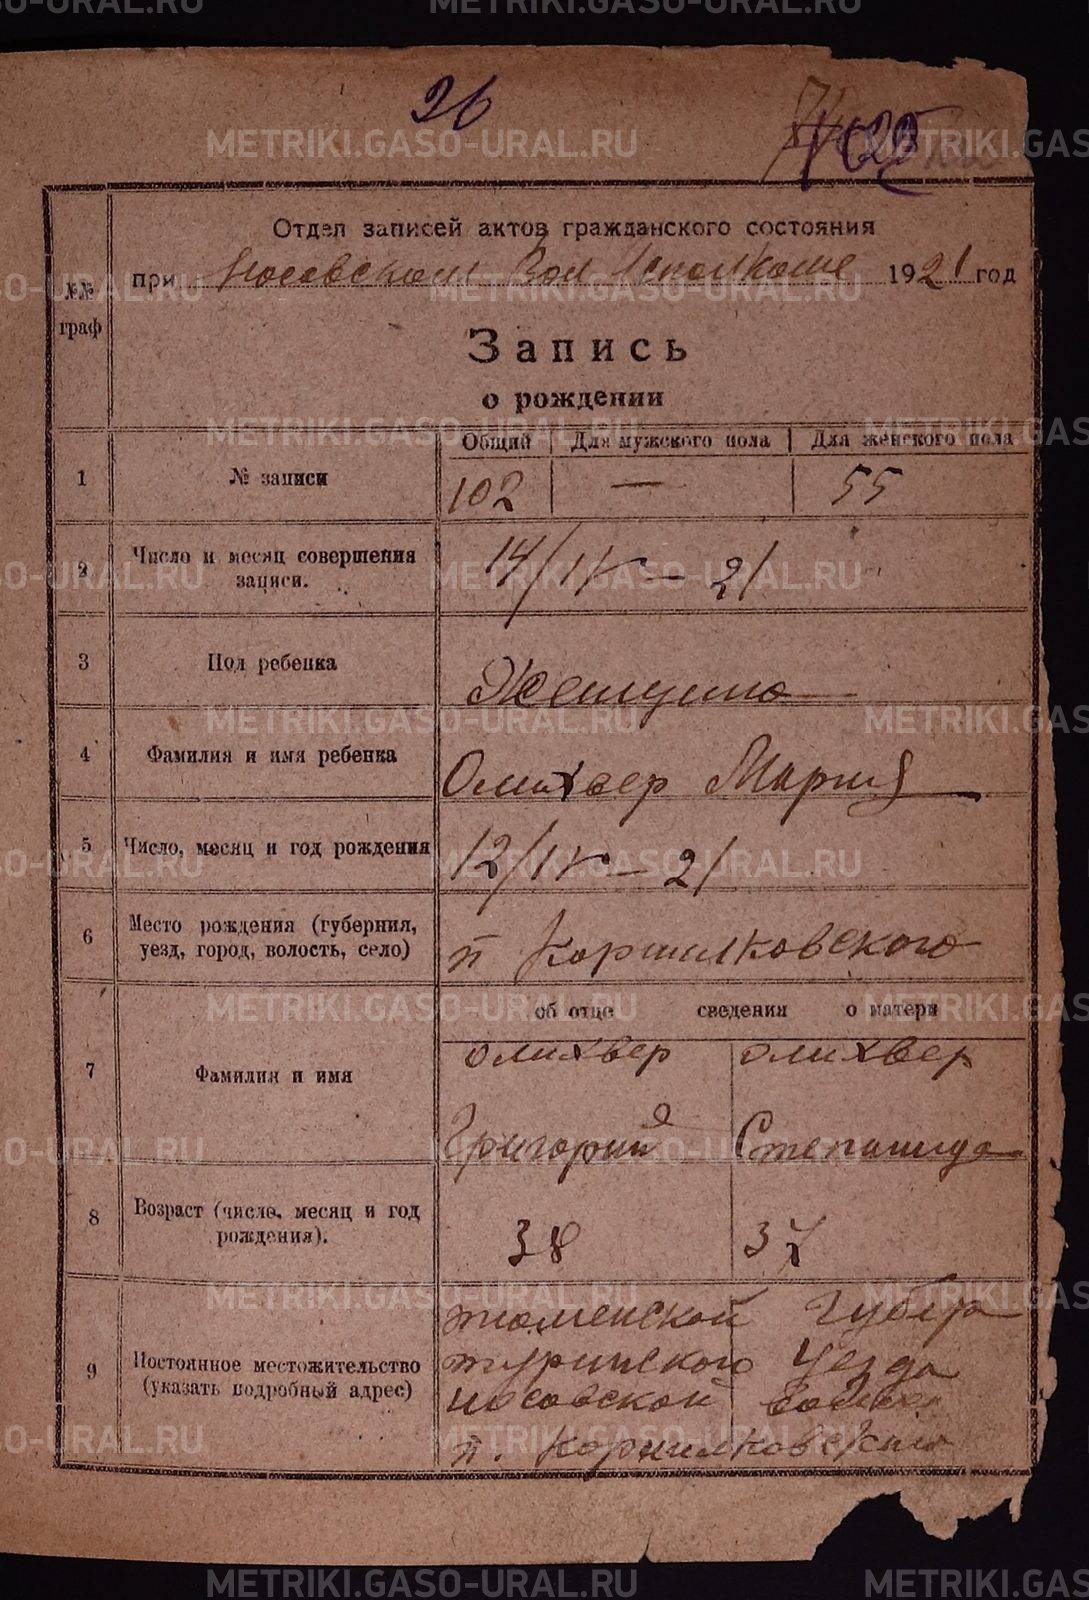 26
Отдел записей актов гражданского состояния
при Носовском Вол Исполкоме 1921 год
№№ граф
Запись
о рождении
Общий Для мужского пола Для женского пола
1 № записи 102 — 55
2 Число и месяц совершения записи. 14/IV – 21
3 Пол ребенка Женщина
4 Фамилия и имя ребенка Олихвер Мария
5 Число, месяц и год рождения 12/IV – 21
6 Место рождения (губерния, уезд, город, волость, село) п Кормилковского
об отце сведения о матери
7 Фамилия и имя
олихвер олихвер
Григорий Степанида
8 Возраст (число, месяц и год рождения). 38 37
9 Постоянное местожительство (указать подробный адрес)
тюменской Губер
туринского Уезда
носовской
п. Кормилковского
METRIKI.GASO-URAL.RU